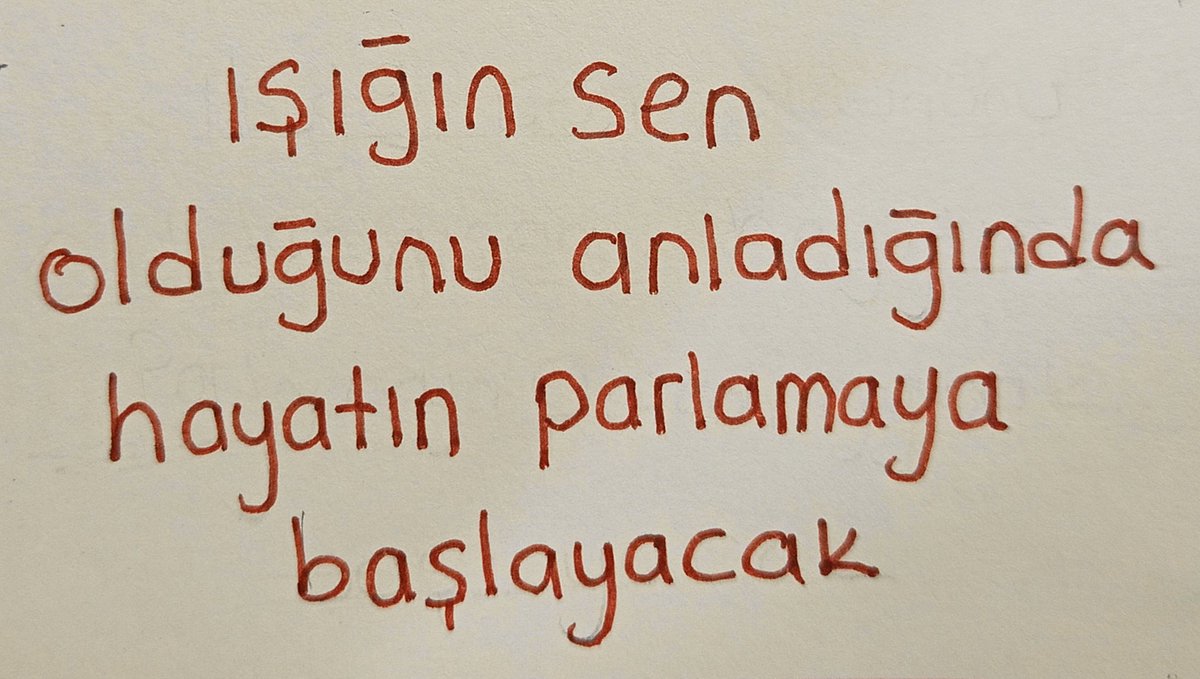 ışığın sen
olduğunu anladığında
hayatın parlamaya
başlayacak